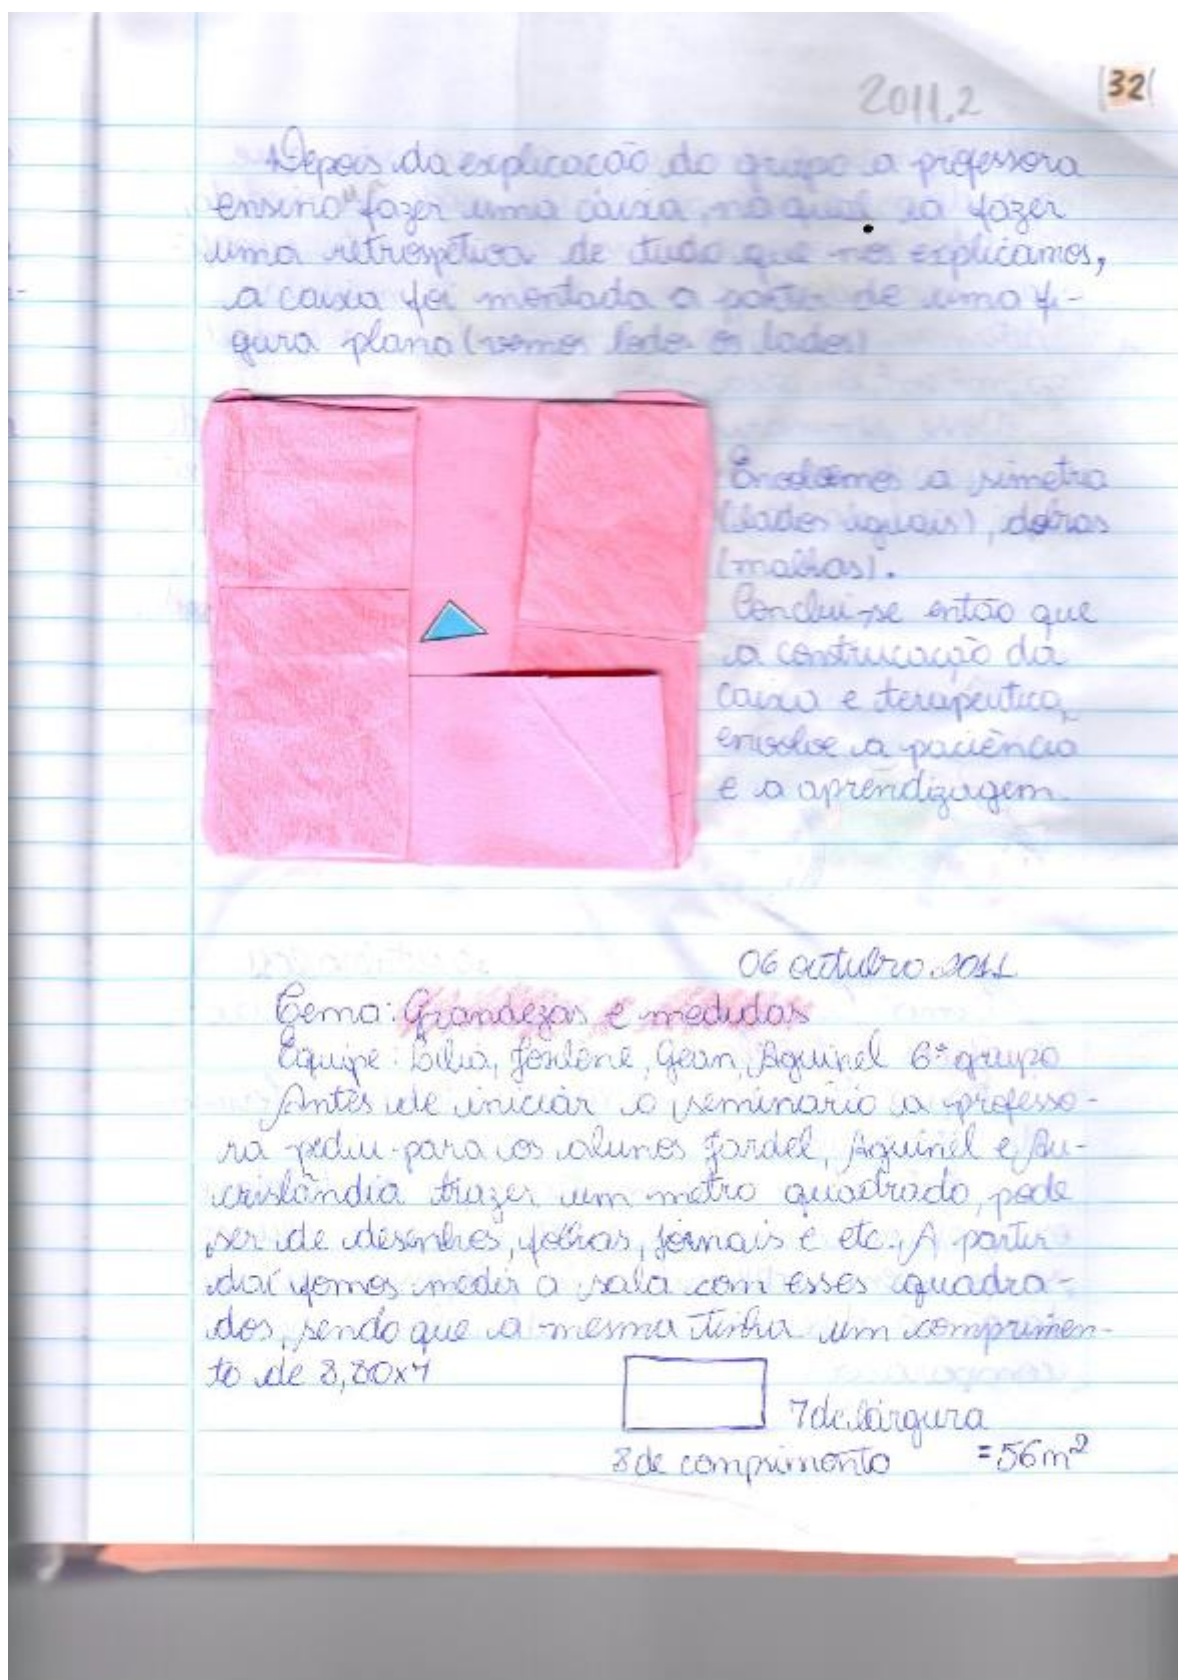 2011.2
32
Depois da explicacão do grupo a professora
ensino" fazer uma caixa, na qual ia fazer
uma retrospetiva de tudo que nós explicamos,
a caixa foi montada a partir de uma fi-
gura plana (vemos todos os lados)
a simetria
(lados iguais), dobras
(malhas).
Conclui-se então que
a construcação da
caixa e terapeutica,
envolve a paciência
e a aprendizagem
06 outubro.2011
Tema: Grandezas e medidas
Equipe: Gean, Aguinel 6º grupo
Antes de iniciar o seminário a professo-
ra pediu para os alunos Jardel, Aguinel e
trazer um metro quadrado, pode
ser de desenhos, folhas, jornais e etc. A partir
daí fomos medir a sala com esses quadra-
dos, sendo que a mesma tinha um comprimen-
to de 8,80x7
7 de largura
8 de comprimento =56m²